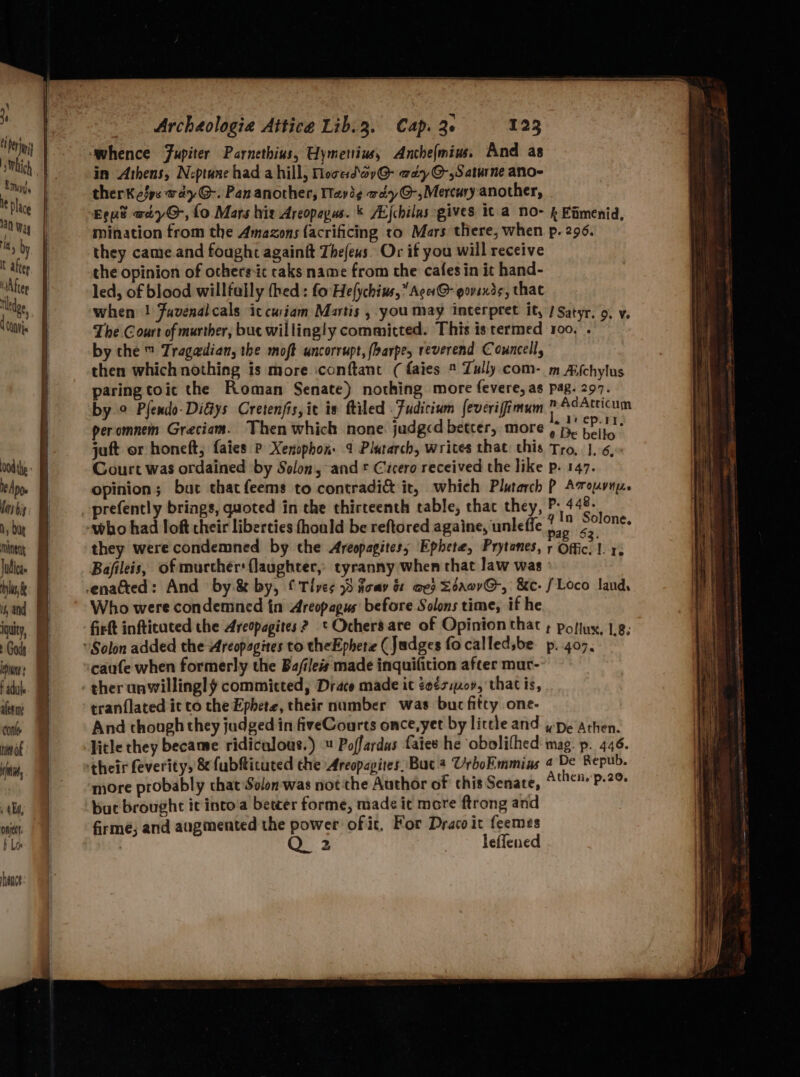 Archæologiæ Atticæ Lib.3. Cap. 3. 123
whence Jupiter Parnethius, Hymettius, Anchesmius. And as
in Athens, Neptune had a hill, Saturne ano-
ther Pan another, Mercury another,
so Mars his Areopagus. k Æschilus gives it a no-
mination from the Amazons sacrificing to Mars there, when
they came and fought against Theseus. Or if you will receive
the opinion of others it taks name from the cases in it hand-
led, of blood willfully shed: so Hesychius, that
when l Juvenal cals it curiam Martis, you may interpret it,
The Court of murther, but willingly committed. This is termed
by the m Tragædian, the most uncorrupt, sharpe, reverend Councell,
then which nothing is more constant (saies n Tully com-
paring to it the Roman Senate) nothing more severe, as
by o Pseudo-Dictys Cretensis, it is stiled Judicium severissimum
per omnem Græciam. Then which none judged better, more
just or honest, saies p Xenophon. q Plutarch, writes that this
Court was ordained by Solon, and r Cicero received the like
opinion; but that seems to contradict it, which Plutarch
presently brings, quoted in the thirteenth table, that they,
who had lost their liberties should be restored againe, unlesse
they were condemned by the Areopagites, Ephetæ, Prytanes,
Basileis, of murther slaughter, tyranny when that law was
enacted: And by & by, &c.
Who were condemned in Areopagus before Solons time, if he
first instituted the Areopagites? t Others are of Opinion that
Solon added the Areopagites to the Ephetæ (Judges so called, be-
cause when formerly the Basileis made inquisition after mur-
ther unwillingly committed, Draco made it that is,
translated it to the Ephetæ, their number was but fifty one.
And though they judged in five Courts once, yet by little and
litle they became ridiculous.) u Possardus saies he obolished
their severity, & substituted the Areopagites. But a UrboEmmius
more probably that Solon was not the Author of this Senate,
but brought it into a better forme, made it more strong and
firme, and augmented the power of it, For Draco it seemes
Q 2 lessened
k Eumenid,
p. 296.
l Satyr. 9. v.
100.
m Æschylus
pag. 297.
n Ad Atticum
l. 1. ep. 11.
o De bello
Tro. l. 6.
p. 147.
p
p. 448.
q In Solone.
pag 53.
r Offic. l. 1.
s Loco laud.
t Pollux. l.8.
p. 407.
u De Athen.
mag. p. 446.
a De Repub.
Athen. p.20.